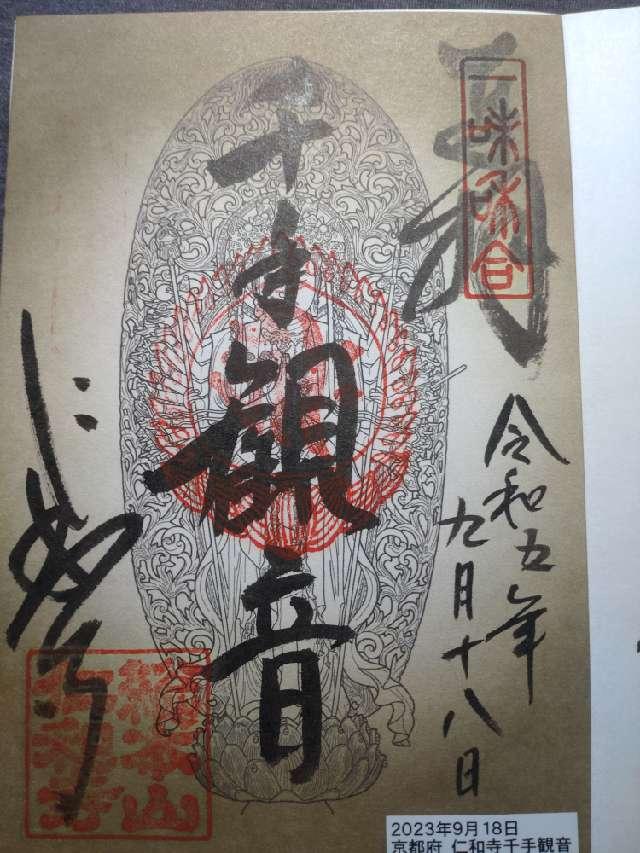 奉拝
一味和合
令和五年
九月十八日
千手観音
仁和寺
総本山
仁和寺
2023年9月18日
京都府 仁和寺千手観音